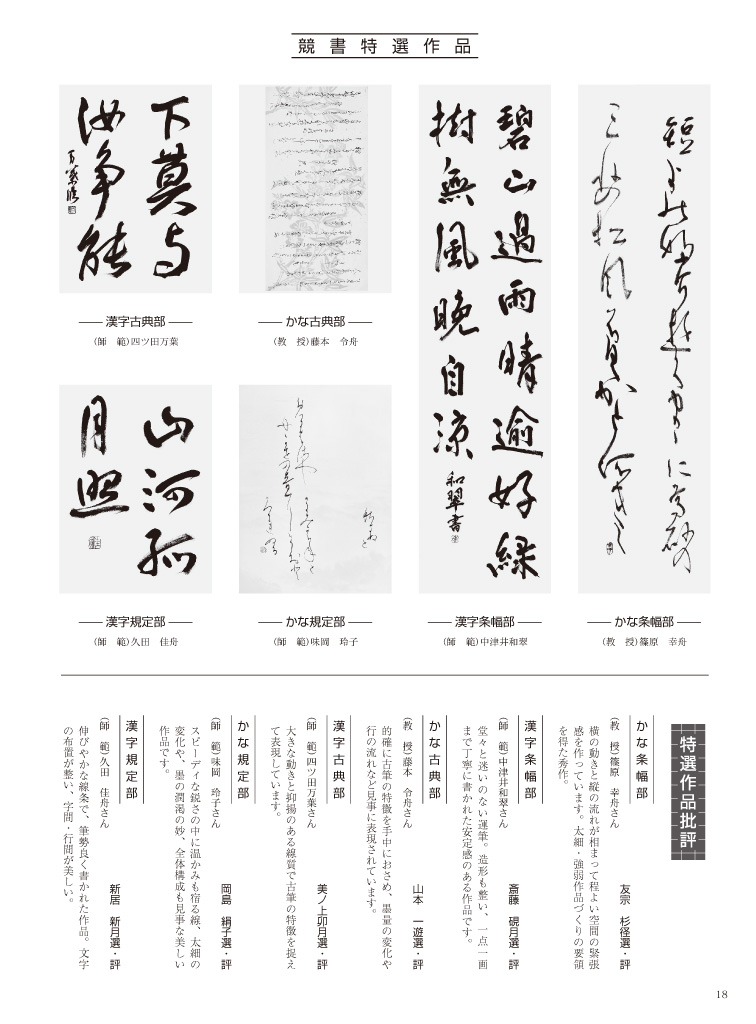 競書特選作品
短
三
碧山過雨晴逾好緑
樹無風晩自涼
和翠書
下莫与
汝争能
山河孤
月照
漢字古典部
(師　範)四ツ田万葉
かな古典部
(教　授)藤本　令舟
漢字規定部
(師　範)久田　佳舟
かな規定部
(師　範)味岡　玲子
漢字条幅部
(師　範)中津井和翠
かな条幅部
(教　授)篠原　幸舟
特選作品批評
かな条幅部
友宗　杉径選・評
(教　授)篠原　幸舟さん
横の動きと縦の流れが相まって程よい空間の緊張
感を作っています。太細・強弱作品づくりの要領
を得た秀作。
漢字条幅部
斎藤　硯月選・評
(師　範)中津井和翠さん
堂々と迷いのない運筆。造形も整い、一点一画
まで丁寧に書かれた安定感のある作品です。
かな古典部
山本　一遊選・評
(教　授)藤本　令舟さん
的確に古筆の特徴を手中におさめ、墨量の変化や
行の流れなど見事に表現されています。
漢字古典部
美ノ上卯月選・評
(師　範)四ツ田万葉さん
大きな動きと抑揚のある線質で古筆の特徴を捉え
て表現しています。
かな規定部
岡島　絹子選・評
(師　範)味岡　玲子さん
スピーディな鋭さの中に温かみも宿る線、太細の
変化や、墨の潤渇の妙、全体構成も見事な美しい
作品です。
漢字規定部
新居　新月選・評
(師　範)久田　佳舟さん
伸びやかな線条で、筆勢良く書かれた作品。文字
の布置が整い、字間・行間が美しい。
18